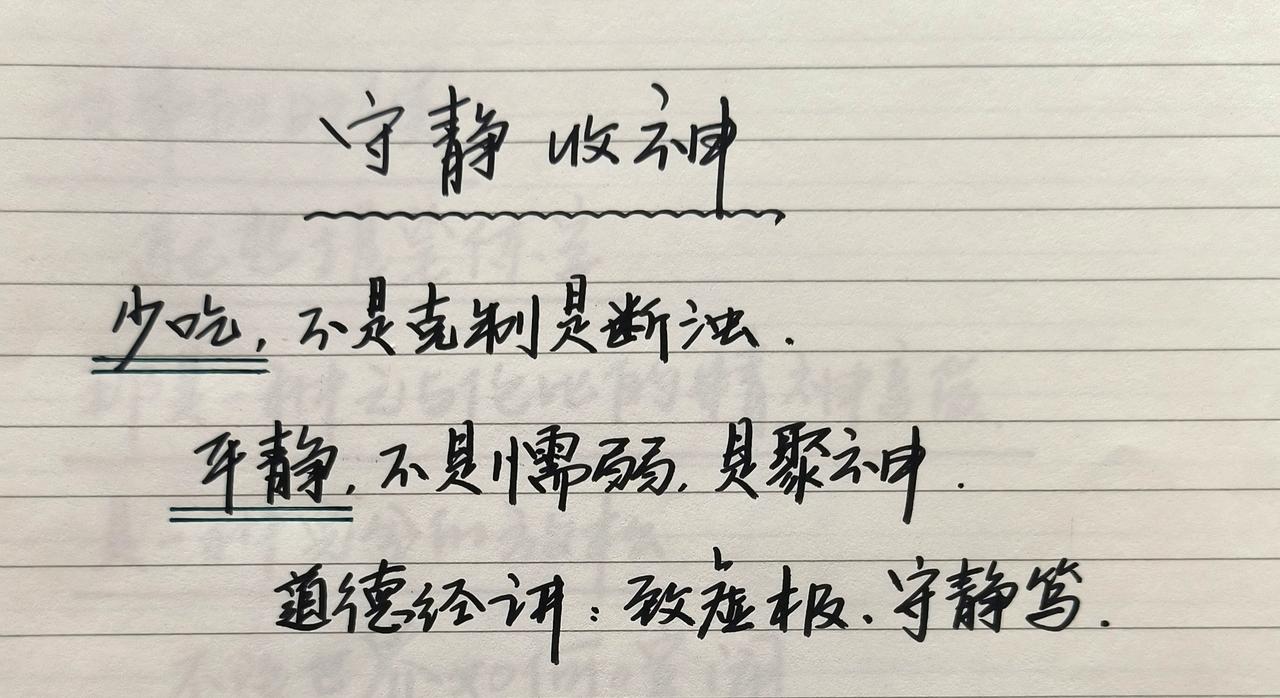 守静 收神
少吃，不是克制是断浊.
平静，不是懦弱，是聚神.
道德经讲：致虚极、守静笃.